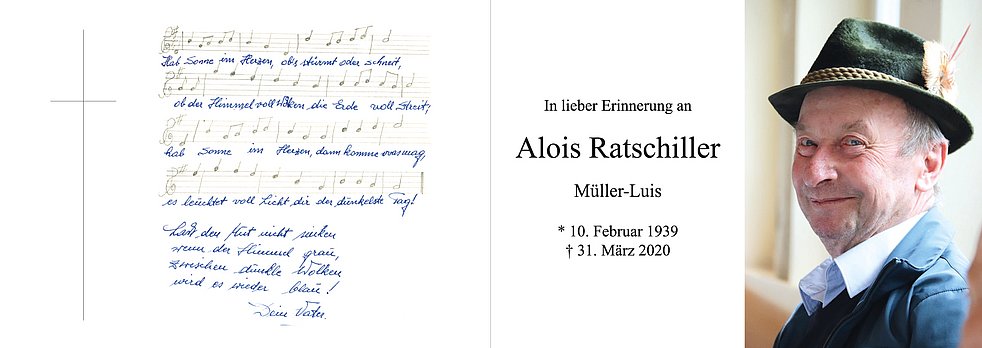 Hab Sonne im Herzen, obs stürmt oder schneit,
ob der Himmel voll Wolken die Erde voll Streit,
hab Sonne im Herzen, dann komme was mag,
es leuchtet voll Licht dir der dunkelste Tag!
Laß den Mut nicht sinken
wenn der Himmel grau,
zwischen dunkle Wolken
wird es wieder blau!
Dein Vater.
In lieber Erinnerung an
Alois Ratschiller
Müller-Luis
* 10. Februar 1939
† 31. März 2020